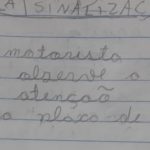 A SINALIZAÇ
motorista
observe o
atenção
a placa de